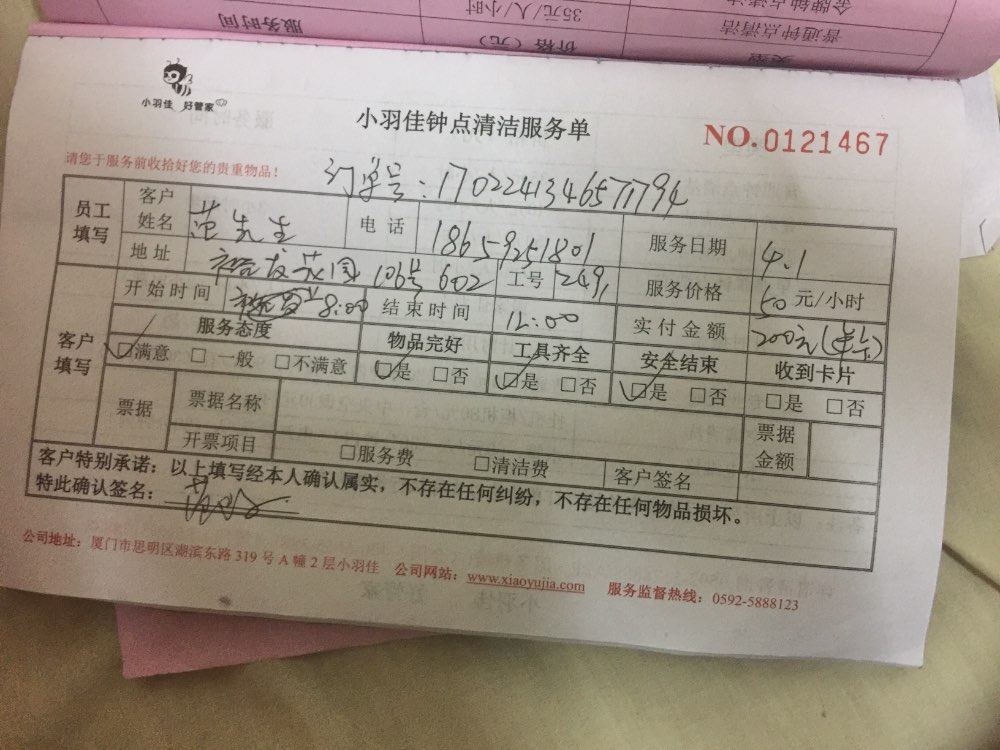 服务时间
35元/人/小时
金牌钟点清洁
价格（元）
普通钟点清洁
类型
小羽佳 好管家
小羽佳钟点清洁服务单
NO.0121467
请您于服务前收拾好您的贵重物品！
订单号：1702241346571794
员工填写 客户姓名 范先生 电话 18659251801 服务日期 4.1
地址 裕发花园 106号 602 工号 249, 服务价格 50元/小时
客户填写 开始时间 8:00 结束时间 12:00 实付金额 200元
服务态度 物品完好 工具齐全 安全结束 收到卡片
☑满意 □一般 □不满意 ☑是 □否 ☑是 □否 ☑是 □否 □是 □否
票据 票据名称 票据金额
开票项目 □服务费 □清洁费 客户签名
客户特别承诺：以上填写经本人确认属实，不存在任何纠纷，不存在任何物品损坏。
特此确认签名：
公司地址：厦门市思明区湖滨东路 319 号 A 幢 2 层小羽佳 公司网站：www.xiaoyujia.com 服务监督热线：0592-5888123